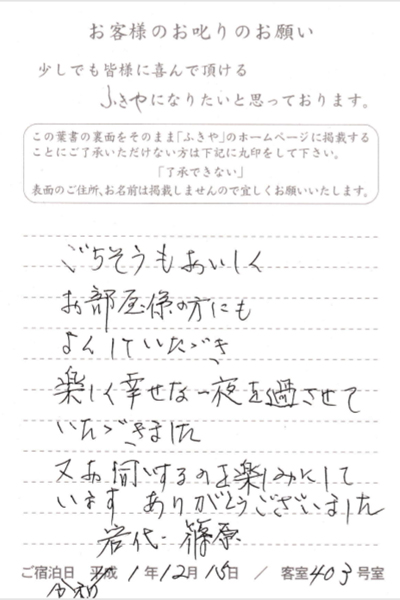 お客様のお叱りのお願い
少しでも皆様に喜んで頂ける
ふきやになりたいと思っております。
この葉書の裏面をそのまま「ふきや」のホームページに掲載する
ことにご了承いただけない方は下記に丸印をして下さい。
「了承できない」
表面のご住所、お名前は掲載しませんので宜しくお願いいたします。
ごちそうもおいしく
お部屋係の方にも
よくしていただき
楽しく幸せな一夜を過させて
いただきました
又お伺いするのを楽しみにして
います ありがとうございました
岩代 篠原
ご宿泊日 平成 1年12月15日 / 客室403号室
令和